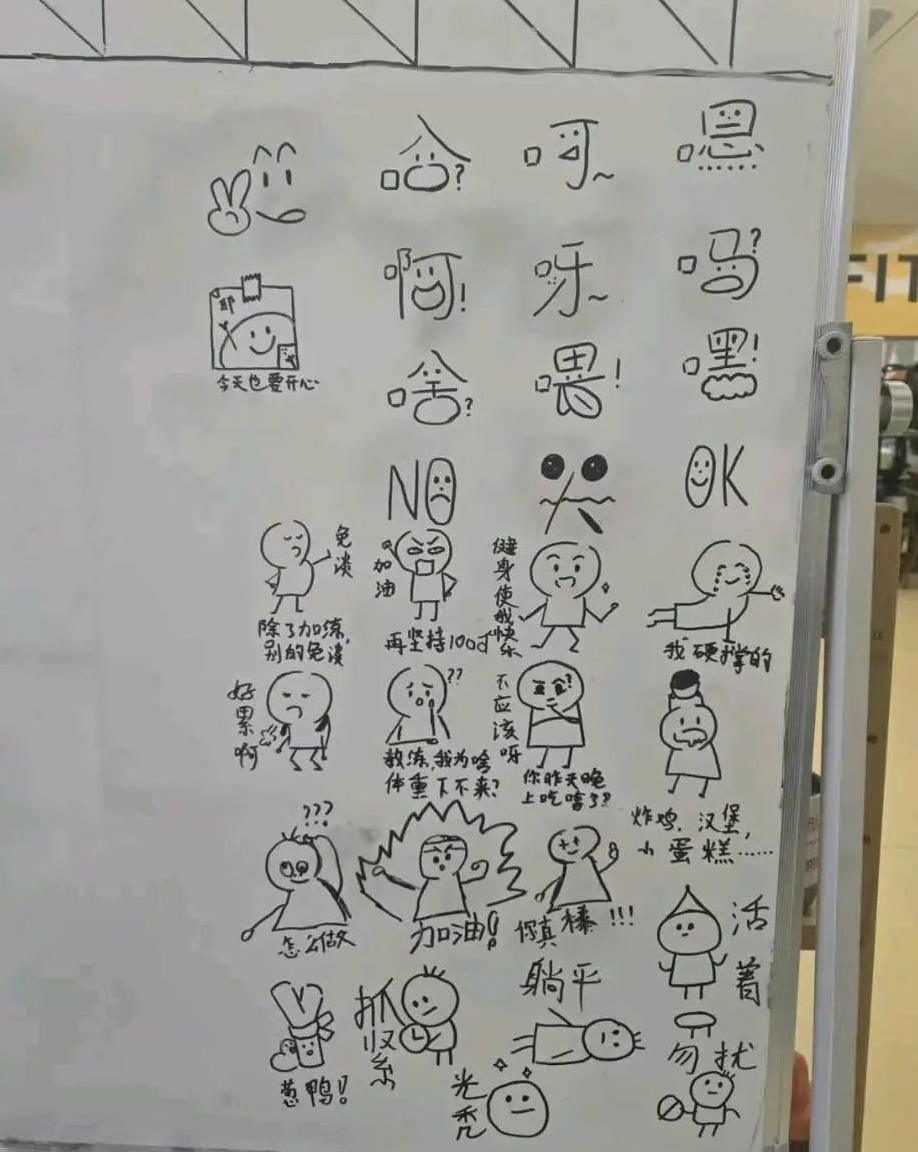 哈? 呵~ 嗯……
耶
今天也要开心
啊! 呀~ 吗?
啥? 喂! 嘿!
NO OK
免谈
除了加练,
别的免谈
加油
再坚持100d
健身使我快乐
我硬撑的
好累啊
??
教练,我为啥
体重下不来?
不应该呀
你昨天晚
上吃啥了?
炸鸡,汉堡,
小蛋糕……
???
怎么做
加油!
你真棒!!!
活着
葱鸭!
抓
躺平
光秃
勿扰
FIT